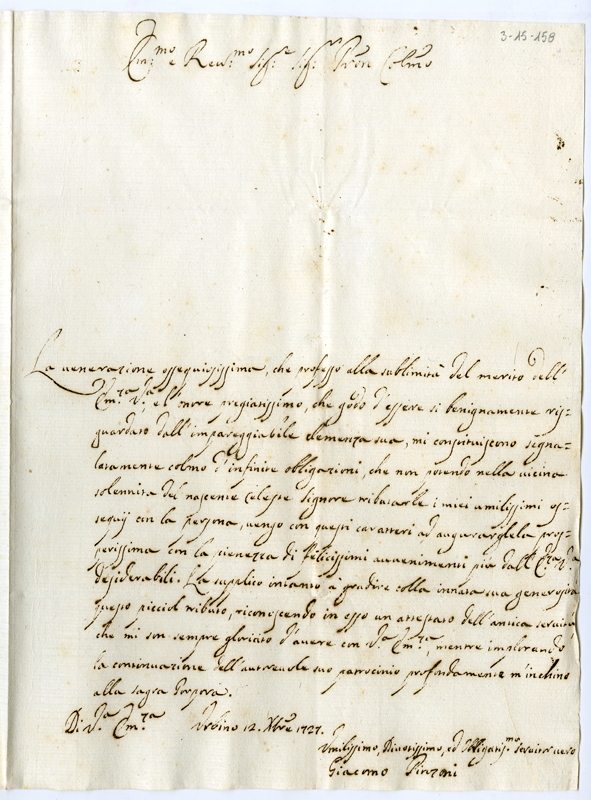 3-15-158
Em:mo e Reu:mo Sig:r Sig:r Pron Colmo
La uenerazione ossequiosissima, che professo alla sublimità del merito dell'
Em:za V:a, e l'onore pregiatissimo, che godo d'essere si benignamente ris=
guardato dall'impareggiabile clemenza sua, mi constituiscono segna=
latamente colmo d'infinite obligazioni, che non potendo nella uicina
solennità del nascente Celeste Signore tributarle i miei umilissimi os=
sequij con la persona, uengo con questi caratteri ad augurargliela pros=
perissima con la pienezza di felicissimi auuenimenti più dall'Em:za V:a
desiderabili. La supplico intanto à gradire colla innata sua generosità
questo picciol tributo, riconoscendo in esso un attestato dell'antica seruitù
che mi son sempre gloriato d'auere con V:a Em:za, mentre implorando
la continuazione dell'autoreuole suo patrocinio profondamente m'inchino
alla sagra Porpora.
Di V:a Em:za Urbino 12. Xbre 1727.
Umilissimo, Diuotissimo, ed Obligatiss:mo Seruitor uero
Giacomo Pinzoni